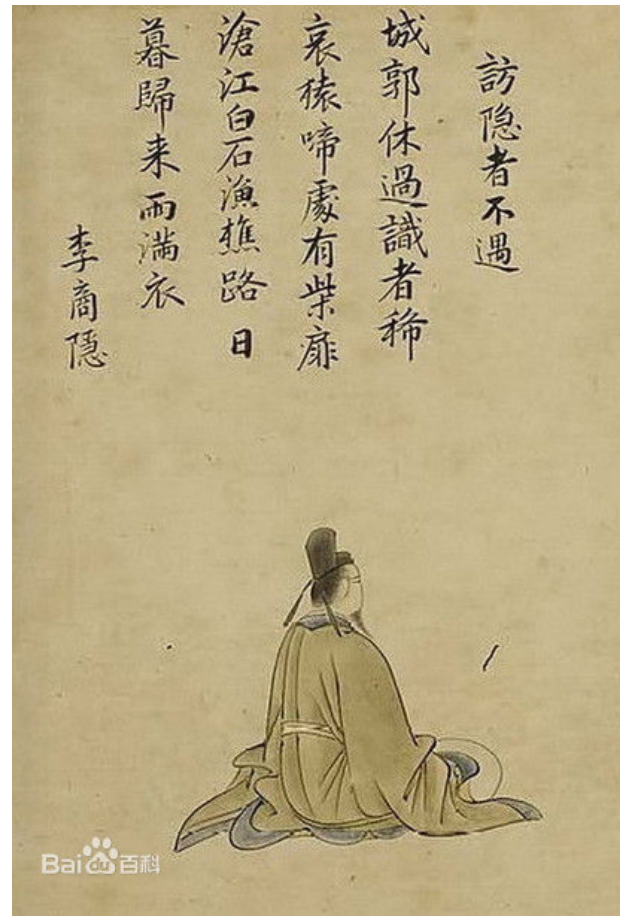 訪隐者不遇
城郭休過識者稀
哀猿啼處有柴扉
滄江白石漁樵路日
暮歸来雨满衣
李商隱
Bai du 百科